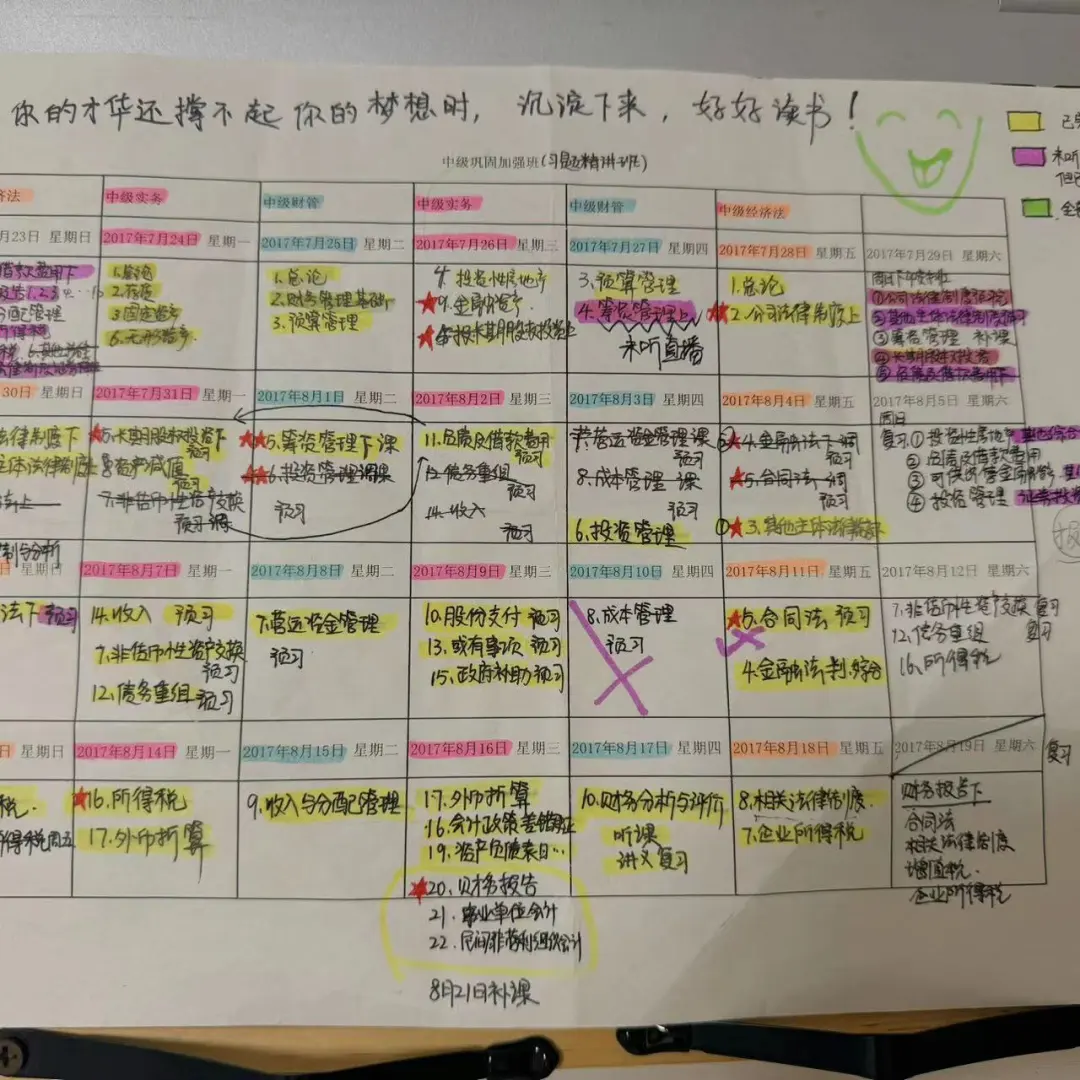 你的才华还撑不起你的梦想时，沉淀下来，好好读书！
中级巩固加强班(习题精讲班)
济法 中级实务 中级财管 中级实务 中级财管 中级经济法
月23日 星期日 2017年7月24日 星期一 2017年7月25日 星期二 2017年7月26日 星期三 2017年7月27日 星期四 2017年7月28日 星期五 2017年7月29日 星期六
1.总论
2.存货
3.固定资产
6.无形资产
1.总论
2.财务管理基础
3.预算管理
4.投资性房地产
9.金融资产
5.长期股权投资上
3.预算管理
4.筹资管理上
未听直播
1.总论
2.公司法律制度上
③筹资管理 补课
④长期股权投资
30日 星期日 2017年7月31日 星期一 2017年8月1日 星期二 2017年8月2日 星期三 2017年8月3日 星期四 2017年8月4日 星期五 2017年8月5日 星期六
法律制度下
5.长期股权投资下
预习
8.资产减值
预习
7.非货币性资产交换
预习 课
5.筹资管理下课
6.投资管理课
预习
11.负债及借款费用
预习
12.债务重组
预习
14.收入
预习
7.营运资金管理课
预习
8.成本管理 课
预习
6.投资管理
4.金融法下 调
预习
5.合同法 调
预习
① 3.其他主体法律制度
周日
复习 ① 投资性房地产
② 负债及借款费用
④ 投资管理
制与分析
星期日 2017年8月7日 星期一 2017年8月8日 星期二 2017年8月9日 星期三 2017年8月10日 星期四 2017年8月11日 星期五 2017年8月12日 星期六
法下 预习
14.收入 预习
7.非货币性资产交换
预习
12.债务重组 预习
7.营运资金管理
预习
10.股份支付 预习
13.或有事项 预习
15.政府补助 预习
8.成本管理
预习
5.合同法 预习
4
4.金融法 判.综合
7.非货币性资产交换 复习
12.债务重组 复习
16.所得税
日 星期日 2017年8月14日 星期一 2017年8月15日 星期二 2017年8月16日 星期三 2017年8月17日 星期四 2017年8月18日 星期五 2017年8月19日 星期六 复习
税.
所得税周五
16.所得税
17.外币折算
9.收入与分配管理
17.外币折算
16.会计政策差错更正
19.资产负债表日…
20.财务报告
21.事业单位会计
22.民间非营利组织会计
8月21日补课
10.财务分析与评价
听课
讲义复习
8.相关法律制度.
7.企业所得税
财务报告下
合同法
相关法律制度
增值税.
企业所得税